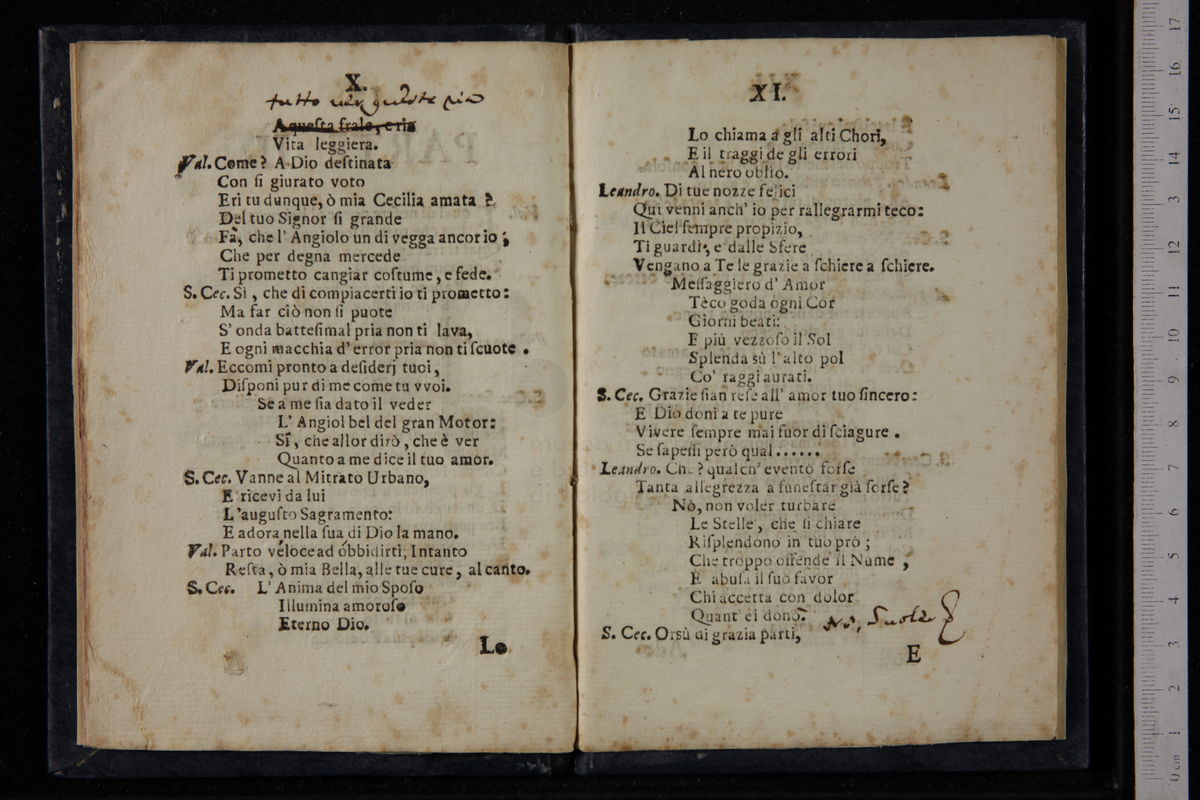 X.
tutto
A questa frale, e ria
Vita leggiera.
Val. Come? A Dio deſtinata
Con ſi giurato voto
Eri tu dunque, ò mia Cecilia amata ?
Del tuo Signor ſi grande
Fà, che l' Angiolo un di vegga ancor io ;
Che per degna mercede
Ti prometto cangiar coſtume, e fede.
S. Cec. Sì , che di compiacerti io ti prometto:
Ma far ciò non ſi puote
S' onda batteſimal pria non ti lava,
E ogni macchia d' error pria non ti ſcuote .
Val. Eccomi pronto a deſiderj tuoi,
Diſponi pur di me come tu vvoi.
Se a me ſia dato il veder
L' Angiol bel del gran Motor:
Sì , che allor dirò , che è ver
Quanto a me dice il tuo amor.
S. Cec. Vanne al Mitrato Urbano,
E ricevi da lui
L'auguſto Sagramento:
E adora nella ſua di Dio la mano.
Val. Parto veloce ad obbidirti; Intanto
Reſta, ò mia Bella, alle tue cure, al canto.
S. Cec. L' Anima del mio Spoſo
Illumina amoroſo
Eterno Dio.
Lo
XI.
Lo chiama a gli alti Chori,
E il traggi de gli errori
Al nero oblio.
Leandro. Di tue nozze felici
Qui venni anch' io per rallegrarmi teco:
Il Ciel ſempre propizio,
Ti guardi, e dalle Sfere
Vengano a Te le grazie a ſchiere a ſchiere.
Meſſaggiero d' Amor
Tèco goda ogni Cor
Giorni beati:
E più vezzoſo il Sol
Splenda sù l'alto pol
Co' raggi aurati.
S. Cec. Grazie ſian reſe all' amor tuo ſincero:
E Dio doni a te pure
Vivere ſempre mai fuor di ſciagure .
Se ſapeſſi però qual......
Leandro. Che ? qualch' evento forſe
Tanta allegrezza a funeſtar già ſorſe?
Nò, non voler turbare
Le Stelle , che ſi chiare
Riſplendono in tuo prò ;
Che troppo offende il Nume ,
E abuſa il ſuo favor
Chi accetta con dolor
Quant' ei donò.
S. Cec. Orsù di grazia parti,
E